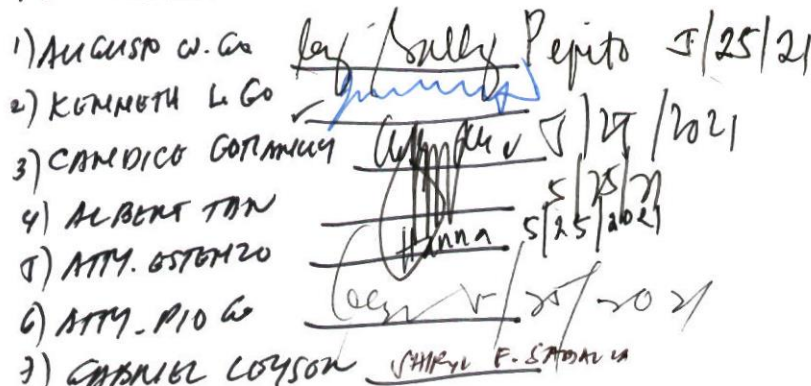 1) AUGUSTO W. GO by Sally Pepito 5/25/21
2) KENNETH L. GO
3) CANDICE GOTIANUY 5/25/2021
4) ALBERT TAN 5/25/21
5) ATTY. ESTENZO Hanna 5/25/2021
6) ATTY. PIO GO 5/25/2021
7) GABRIEL LEYSON